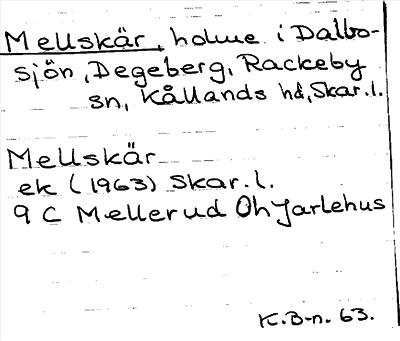 Mellskär, holme i Dalbo-
sjön, Degeberg, Rackeby
sn, Kållands hd, Skar.l.
Mellskär
ek (1963) Skar.l.
9 C Mellerud Öh Jarlehus
K.B-n. 63.